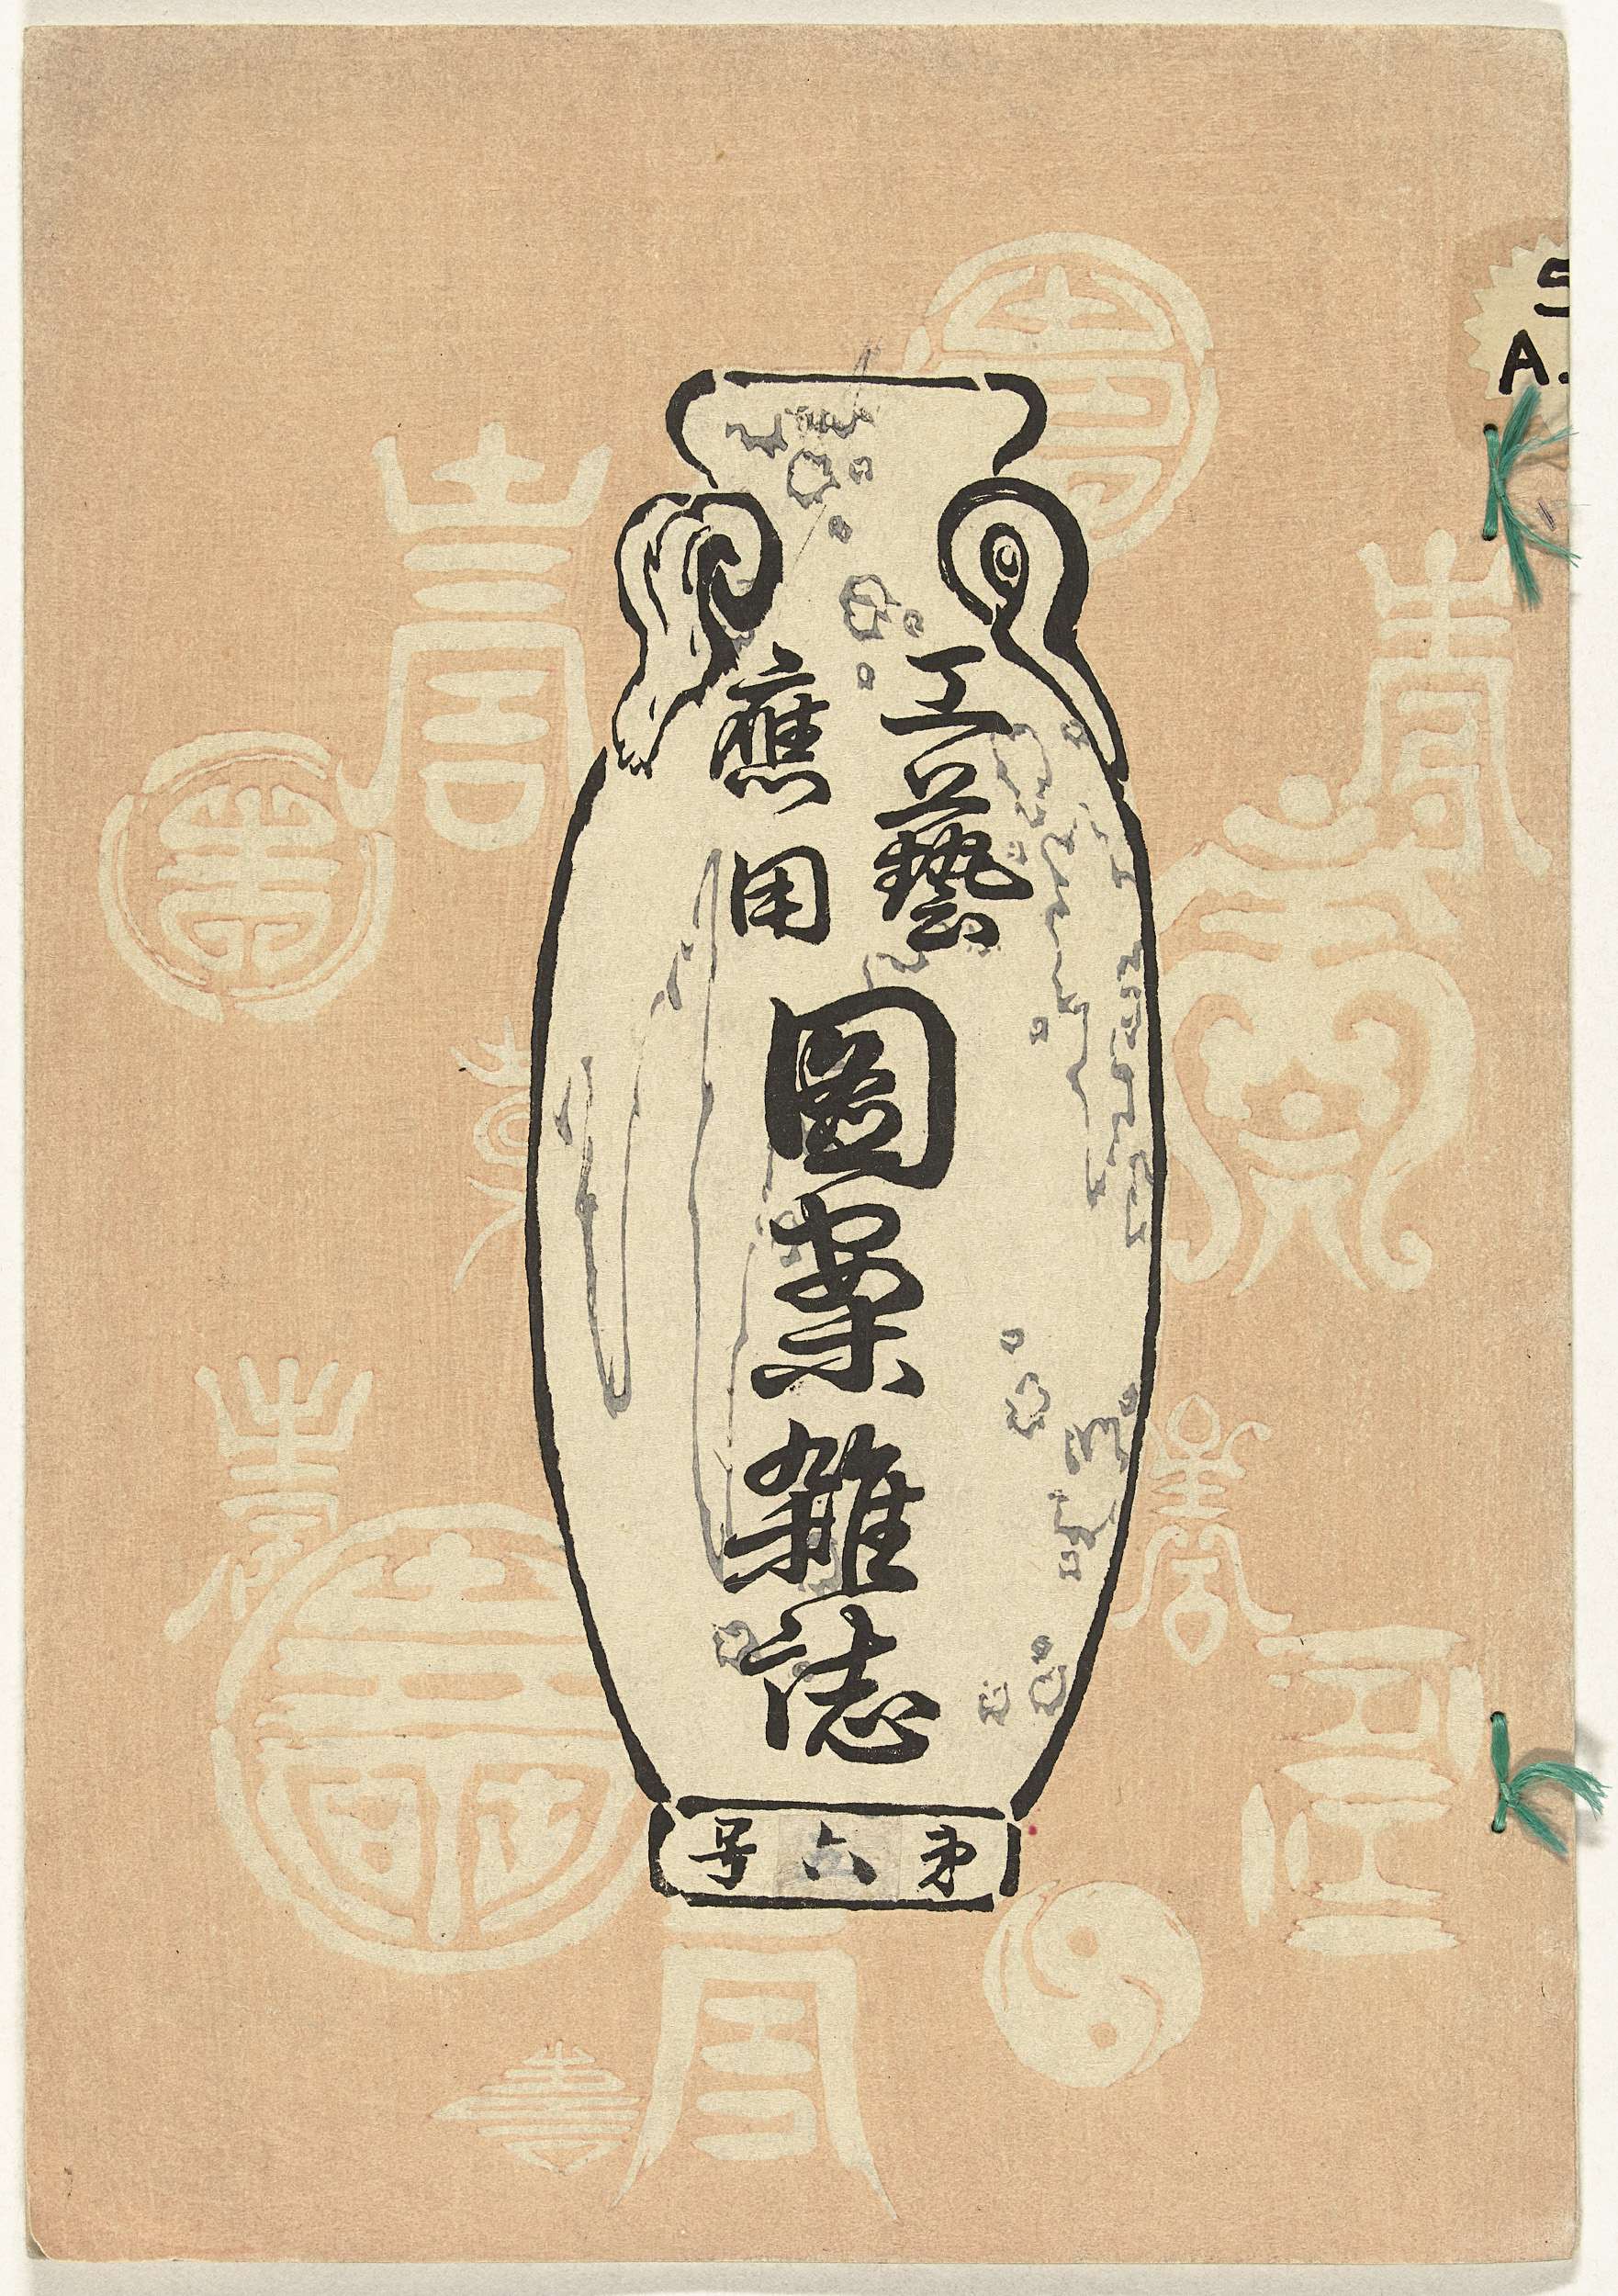 工藝
應用
圖案雜誌
第六号
S
A.